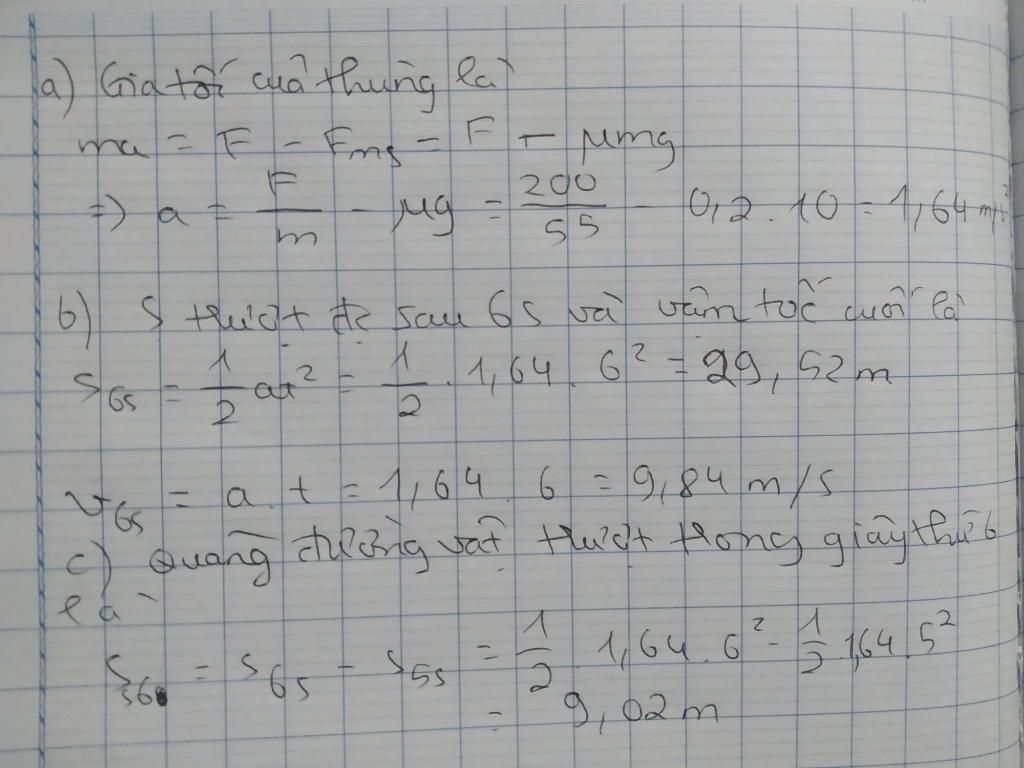 a) Gia tốc của thùng là
ma = F - Fms = F - μmg
=> a = F/m - μg = 200/55 - 0,2 . 10 = 1,64 m/s²
b) S trượt đc sau 6s và vận tốc cuối là
S6s = 1/2 at² = 1/2 . 1,64 . 6² = 29,52 m
v6s = a . t = 1,64 . 6 = 9,84 m/s
c) Quãng đường vật trượt trong giây thứ 6
là
Ss6 = S6s - S5s = 1/2 . 1,64 . 6² - 1/2 1,64 . 5²
= 9,02 m